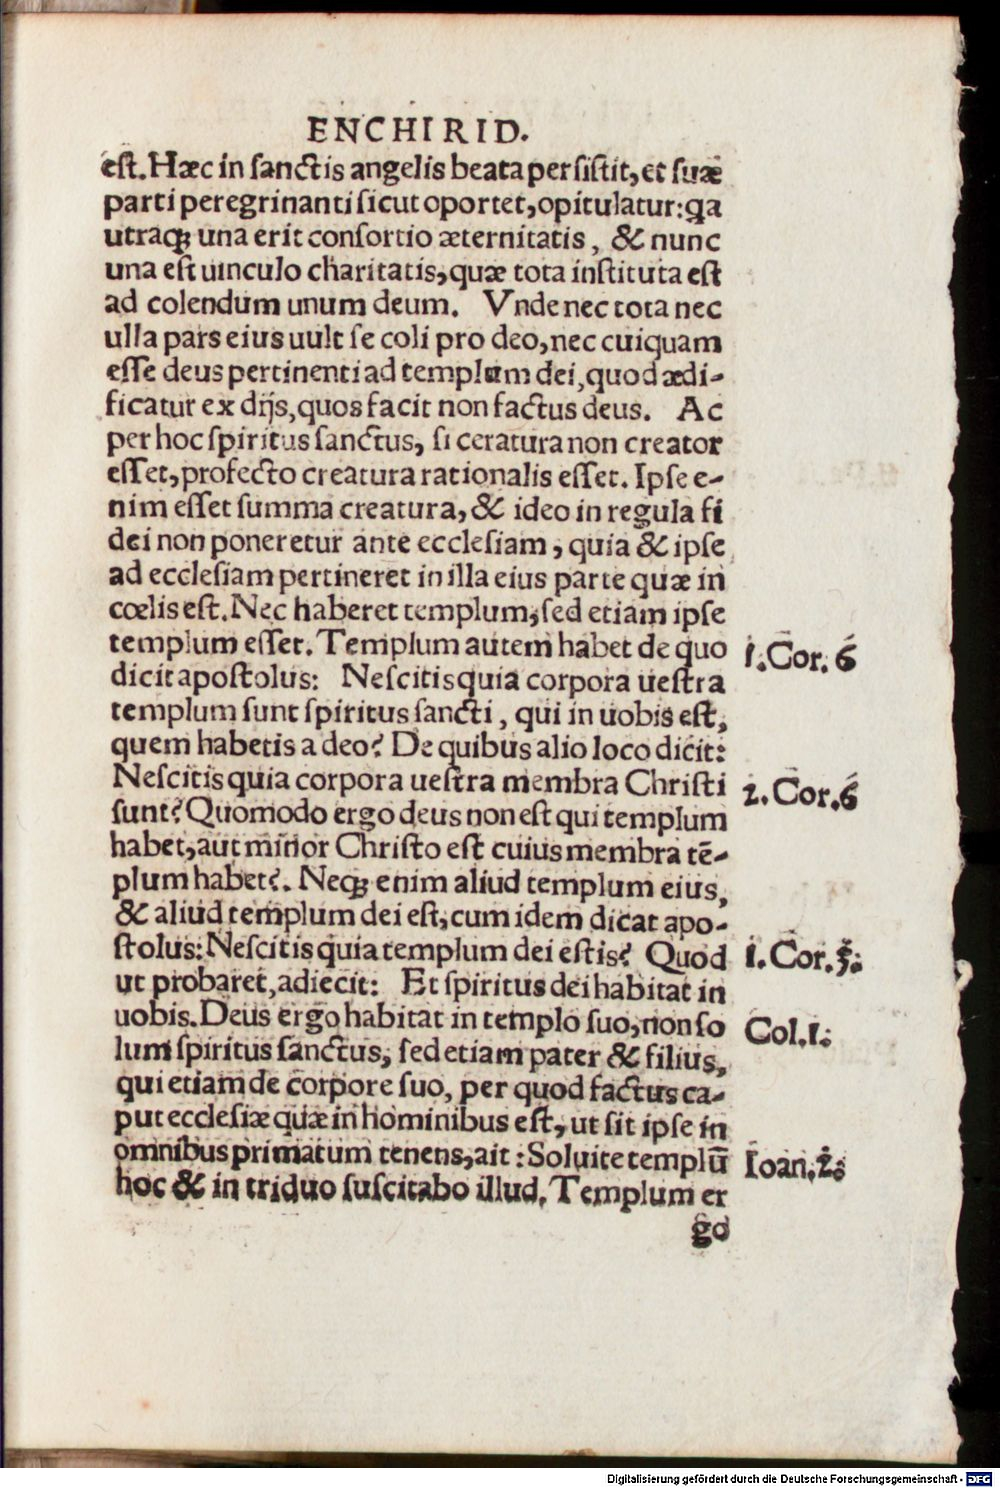 ENCHIRID.
est. Hæc in sanctis angelis beata persistit, et suæ
parti peregrinanti sicut oportet, opitulatur: qa
utraqꝫ una erit consortio æternitatis, & nunc
una est uinculo charitatis, quæ tota instituta est
ad colendum unum deum. Vnde nec tota nec
ulla pars eius uult se coli pro deo, nec cuiquam
esse deus pertinenti ad templum dei, quod ædi-
ficatur ex dijs, quos facit non factus deus. Ac
per hoc spiritus sanctus, si ceratura non creator
esset, profecto creatura rationalis esset. Ipse e-
nim esset summa creatura, & ideo in regula fi
dei non poneretur ante ecclesiam, quia & ipse
ad ecclesiam pertineret in illa eius parte quæ in
cœlis est. Nec haberet templum, sed etiam ipse
templum esset. Templum autem habet de quo
1. Cor. 6
dicit apostolus: Nescitis quia corpora uestra
templum sunt spiritus sancti, qui in uobis est,
quem habetis a deo? De quibus alio loco dicit:
Nescitis quia corpora uestra membra Christi
2. Cor. 6
sunt? Quomodo ergo deus non est qui templum
habet, aut minor Christo est cuius membra tē-
plum habet?. Neqꝫ enim aliud templum eius,
& aliud templum dei est, cum idem dicat apo-
stolus: Nescitis quia templum dei estis? Quod
1. Cor. 3:
ut probaret, adiecit: Et spiritus dei habitat in
uobis. Deus ergo habitat in templo suo, non so
Col. 1:
lum spiritus sanctus, sed etiam pater & filius,
qui etiam de corpore suo, per quod factus ca-
put ecclesiæ quæ in hominibus est, ut sit ipse in
omnibus primatum tenens, ait: Soluite templū
Ioan. 2:
hoc & in triduo suscitabo illud. Templum er
go
Digitalisierung gefördert durch die Deutsche Forschungsgemeinschaft - DFG